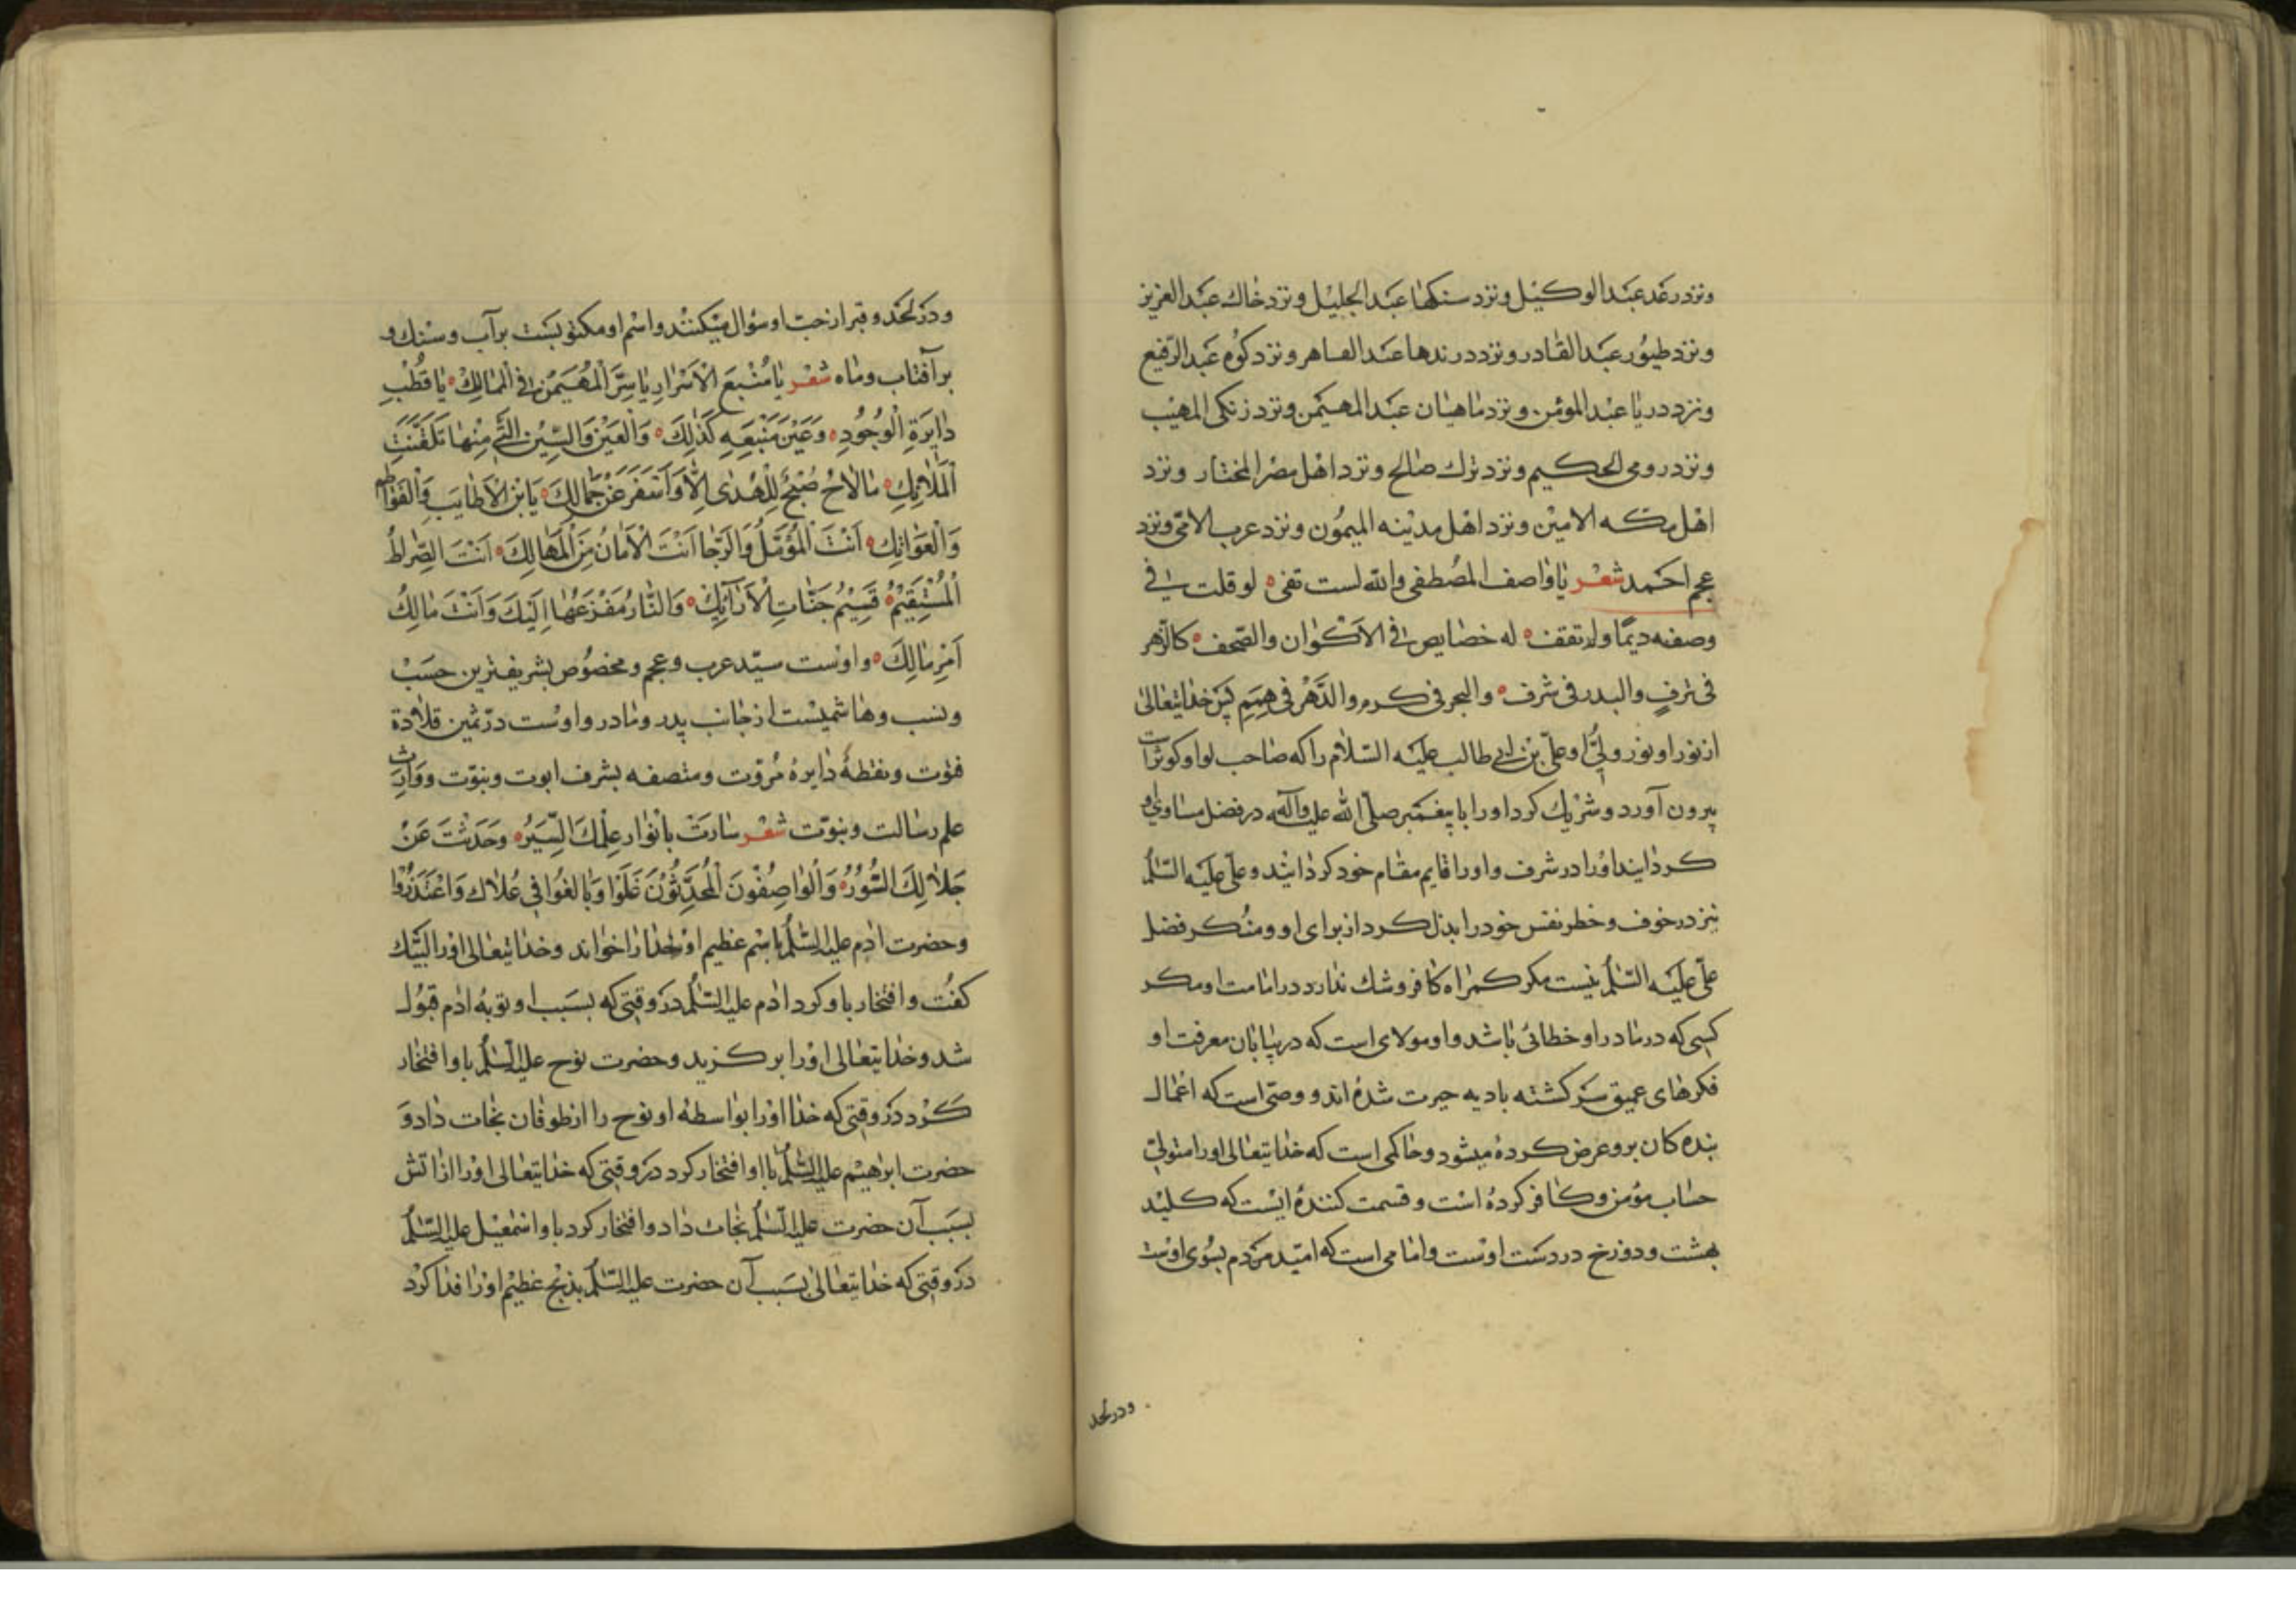 ونزد رعد عبدالوكیل ونزد سنكها عبدالجلیل ونزد خاك عبدالعزیز
ونزد طیور عبدالقادر ونزد درندها عبدالقاهر ونزد كوه عبدالرّفیع
ونزد دریا عبدالمومن ونزد ماهیان عبدالمهیمن ونزد زنكی المهیب
ونزد رومی الحكیم ونزد ترك صالح ونزد اهل مصر المختار ونزد
اهل مكه الامین ونزد اهل مدینه المیمون ونزد عرب الامّی ونزد
عجم احمد شعر یا واصف المصطفی والله لست تفی لو قلت فی
وصفه دیمًا ولم تقف له خصایص فی الاكوان والصّحف كالزّهر
فی ترفٍ والبدر فی شرف والبحر فی كرم والدّهر فی همم پس خدایتعالی
از نور او نور ولیّ او علیّ بن ابی طالب علیه السّلام را كه صاحب لوا و كوثر است
بیرون آورد و شریك كرد او را با پیغمبر صلّی الله علیه وآله در فضل و مساوی
كردانید او را در شرف و او را قایم مقام خود كردانید و علی علیه السّلم
نیز در خوف و خطر نفس خود را بذل كرد از برای او و منكر فضل
علی علیه السّلم نیست مكر كمراه كافر و شك ندارد در امامت او مكر
كسی كه در مادر او خطائی باشد و او مولای است كه در بیابان معرفت او
فكرهای عمیق سركشته بادیه حیرت شده اند و وصّی است كه اعمال
بنده كان برو عرض كرده میشود و حاكمی است كه خدایتعالی او را متولی
حساب مؤمن و كافر كرده است و قسمت كننده ایست كه كلید
بهشت و دوزخ در دست اوست و امامی است كه امّید مردم بسوی اوست
ودر لحد
ودر لحد و قبر از حبّ او سؤال میكنند و اسم او مكتوبست بر آب و سنك و
بر آفتاب و ماه شعر یا مُنْبِعَ الْاَسْرارِ یا سِرَّ الْمُهَیْمِنِ فی الْمَمالِكْ یا قُطْبِ
دایِرَةِ الْوُجُودِ وَعَیْنَ مَنْبَعِهِ كَذٰلِكَ وَالْعَیْنَ وَالسِّیْنَ الَّتی مِنْها تَلَقَّنَتِ
الْمَلائِكِ مالاحَ صُبْحٌ لِلْهُدٰی اِلّا وَاَسْفَرَ عَنْ جَمالِكَ یَابْنَ الْاَطایِبِ وَالْفَوَاطِمِ
وَالْعَوَاتِكِ اَنْتَ الْمُؤَمَّلُ وَالرَّجا اَنْتَ الْاَمانُ مِنَ الْمَهالِكَ اَنْتَ الصِّراطُ
الْمُسْتَقِیْمُ قَسِیْمُ جَنّاتِ الْاَرآئِكِ وَالنّارُ مَفْزَعُها اِلَیْكَ وَاَنْتَ مالِكُ
اَمْرِ مالِكَ و اوست سیّد عرب و عجم و مخصوص بشریفترین حسب
و نسب و هاشمیست از جانب پدر و مادر و اوست درّ ثمین قلادة
فتوت و نقطهٔ دایرهٔ مُروّت و متصفه بشرف ابوت و بنوّت و وارث
علم رسالت و نبوّت شعر سارَتْ بِاَنْوارِ عِلْمِكَ السِّیَرُ وَحَدَّثَتْ عَنْ
جَلالِكَ السُّوَرُ وَالْواصِفُونَ الْمُحَدِّثُونَ غَلَوْا وَبالَغُوا فی عُلاكَ وَاعْتَذَرُوا
وحضرت ادم علیه السّلم باسم عظیم او خدا را خواند و خدایتعالی او را لبیّك
كفت و افتخار باو كرد ادم علیه السّلم در وقتی كه بسبب او توبهٔ ادم قبول
شد و خدایتعالی او را بركزید و حضرت نوح علیه السّلم باو افتخار
كرد در وقتی كه خدا او را بواسطهٔ او نوح را از طوفان نجات داد و
حضرت ابراهیم علیه السّلم باو افتخار كرد در وقتی كه خدایتعالی او را از اتش
بسبب آن حضرت علیه السّلم نجات داد و افتخار كرد باو اسمعیل علیه السّلم
در وقتی كه خدایتعالی بسبب آن حضرت علیه السّلم بذبح عظیم او را فدا كرد